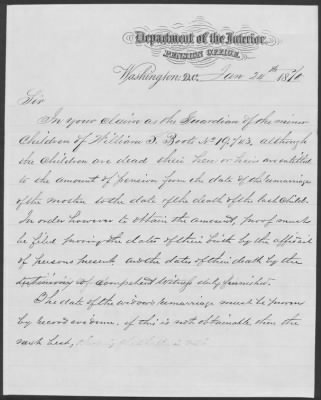 Department of the Interior,
PENSION OFFICE,
Washington D.C. Jan 24th 1870
Sir
In your claim as the Guardian of the minor
Children of William S. Boots No 19,723, although
the Children are dead their heir or heirs are entitled
to the amount of pension from the date of the remarriage
of the mother to the date of the death of the last child.
In order however to obtain the amount, proof must
be filed proving the dates of their birth by the affidavit
of persons present, and the dates of their death by the
testimony of competent witness duly furnished.
The date of the widow's remarriage must be proven
by record evidence, if this is not obtainable then the
next best,